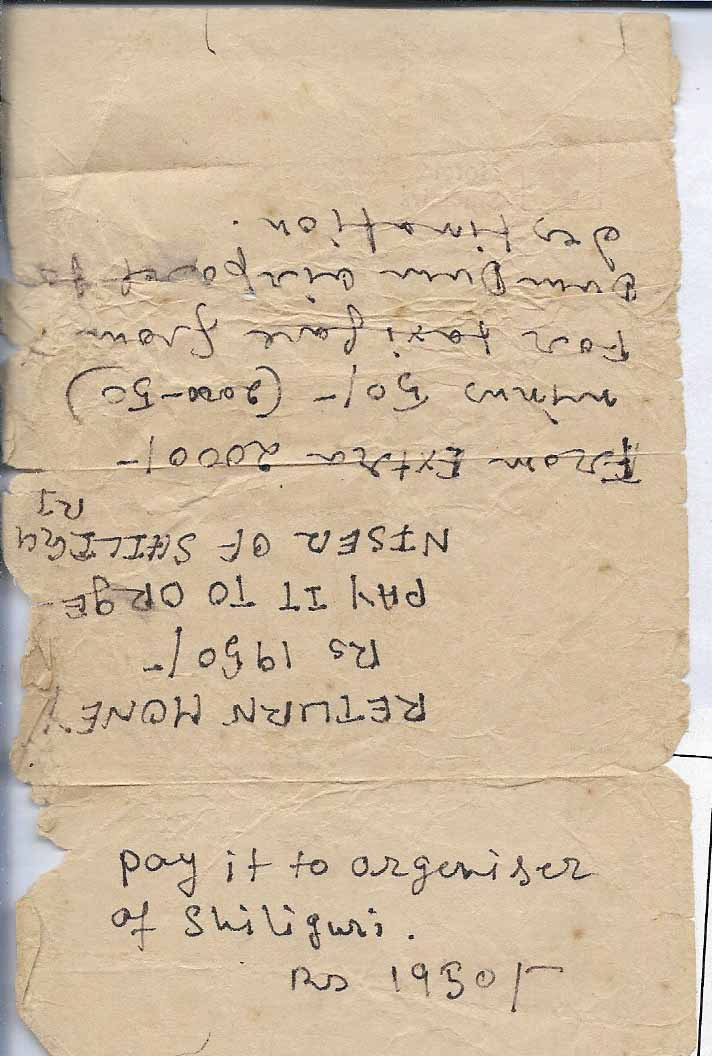 RETURN MONEY
Rs 1950/-
PAY IT TO ORGE-
NISER OF SHILIGU
RI
From Extra 2000/-
minus 50/- (2000-50)
For taxi fare from
Dum Dum airport to
destination.
pay it to orgeniser
of Shiliguri.
Rs 1950/-